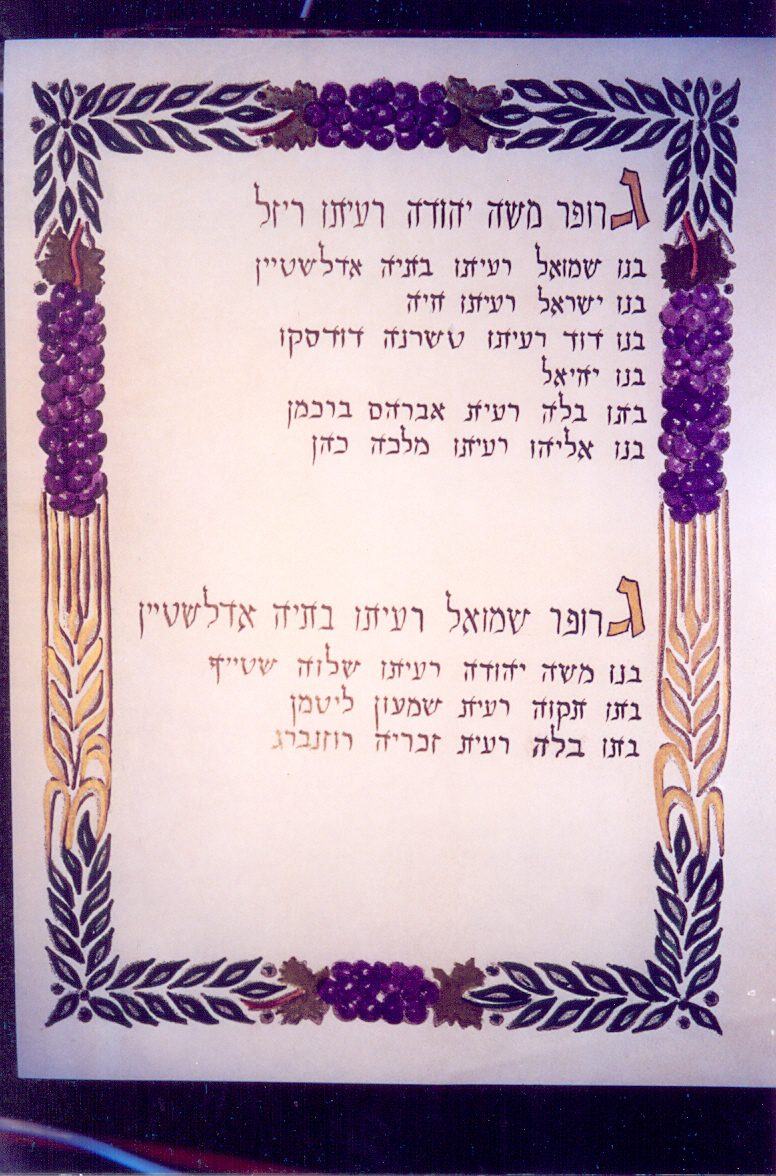 גרופר משה יהודה רעיתו ריזל
בנו שמואל רעיתו בתיה אדלשטיין
בנו ישראל רעיתו חיה
בנו דוד רעיתו טשרנה דודסקו
בנו יחיאל
בתו בלה רעית אברהם ברכמן
בנו אליהו רעיתו מלכה כהן
גרופר שמואל רעיתו בתיה אדלשטיין
בנו משה יהודה רעיתו שלוה שטייף
בתו תקוה רעית שמעון ליטמן
בתו בלה רעית זכריה רוזנברג